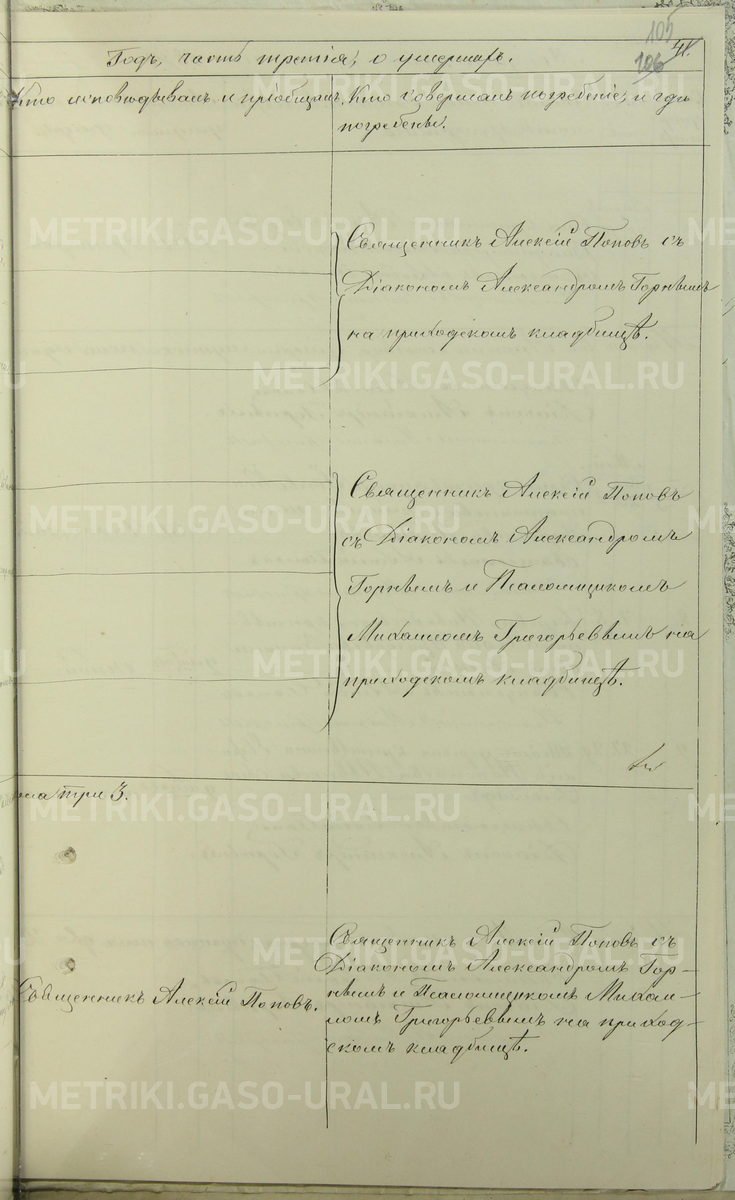 105
106
41.
Годъ, часть третія, о умершихъ.
Кто исповѣдывалъ и пріобщалъ.
Кто совершалъ погребеніе, и гдѣ
погребены.
Священникъ Алексій Поповъ съ
Діакономъ Александромъ Горнымъ
на приходскомъ кладбищѣ.
Священникъ Алексій Поповъ
съ Діакономъ Александромъ
Горнымъ и Псаломщикомъ
Михаиломъ Григорьевымъ на
приходскомъ кладбищѣ.
три 3.
Священникъ Алексій Поповъ.
Священникъ Алексій Поповъ съ
Діакономъ Александромъ Гор-
нымъ и Псаломщикомъ Михаи-
ломъ Григорьевымъ на приход-
скомъ кладбищѣ.
METRIKI.GASO-URAL.RU